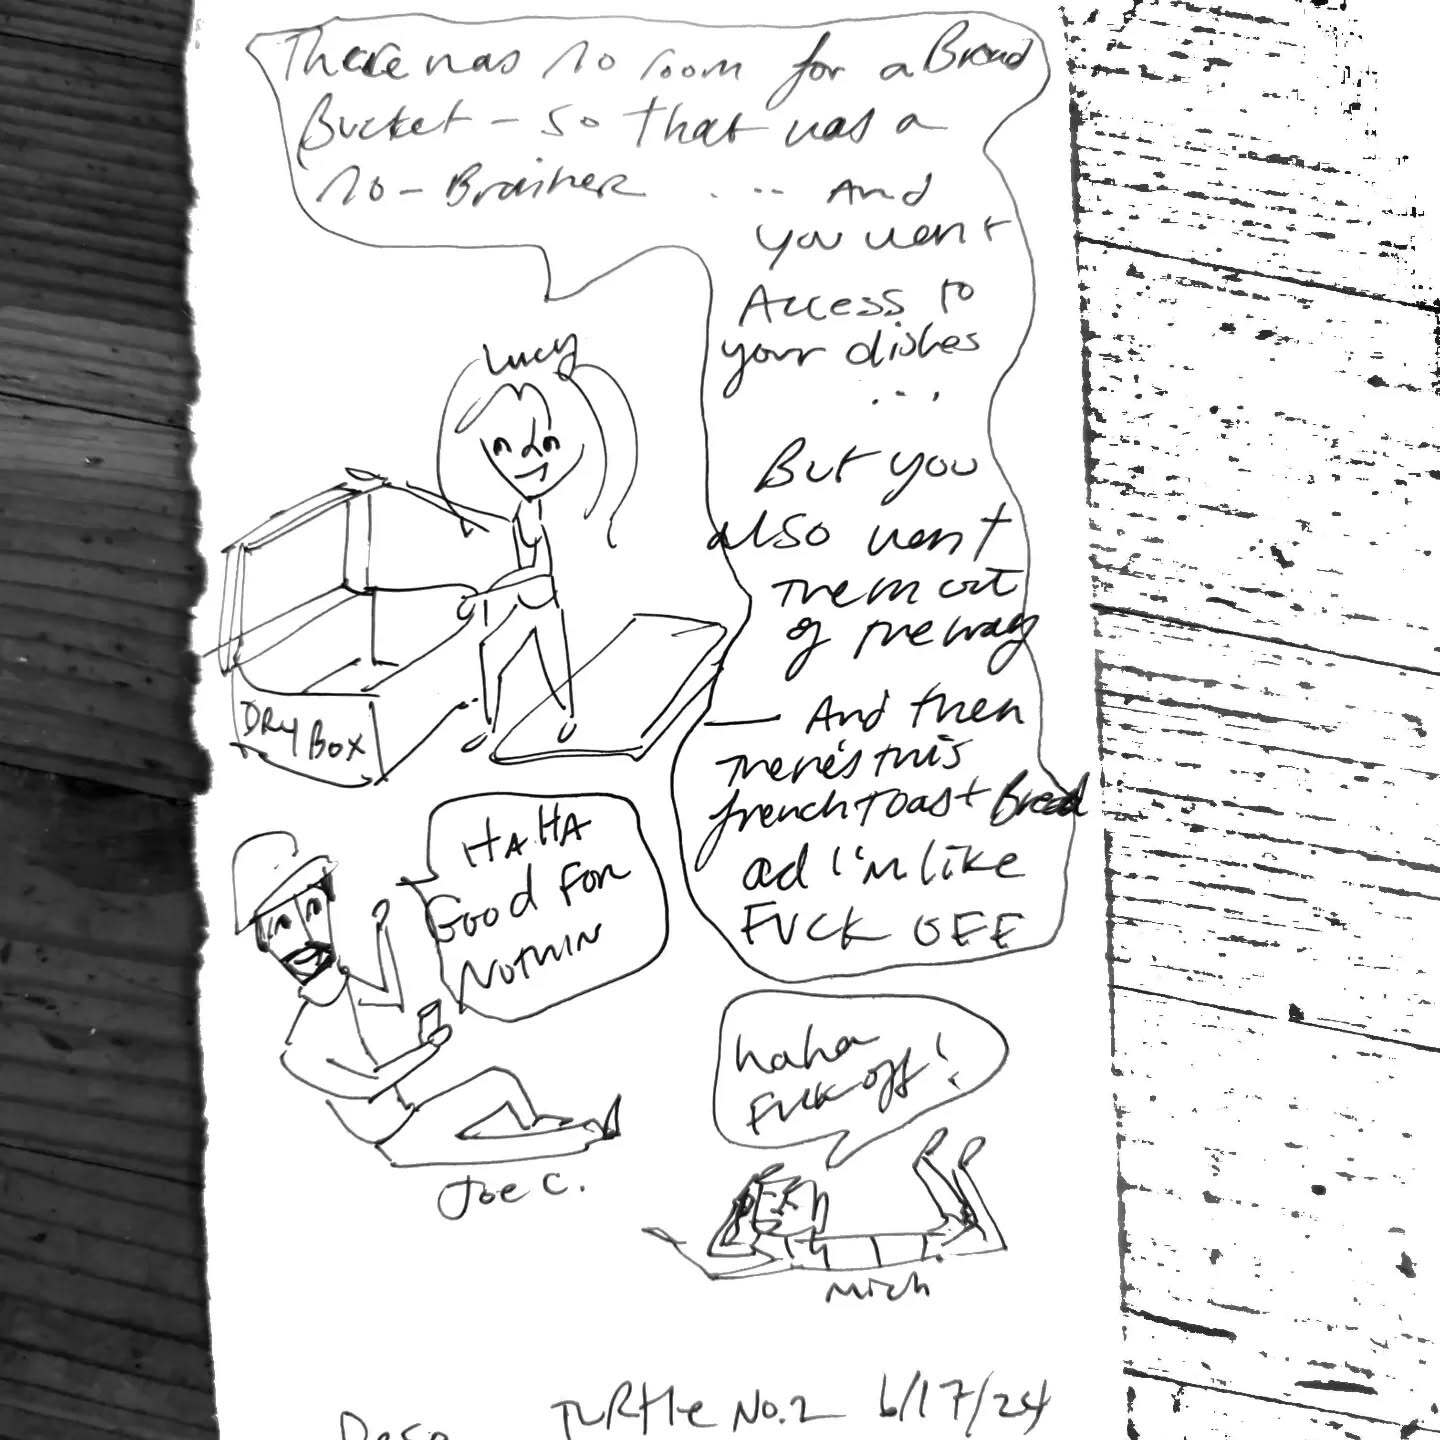 There was no room for a Bread
Bucket - so that was a
no-Brainer .... And
you want
Access to
your dishes
...
But you
also want
them out
of the way
— And then
there's this
french toast Bread
ad I'm like
FUCK OFF
Lucy
DRY BOX
HA HA
Good For
NOTHIN
haha
Fuck off!
Joe C.
Mich
TURTLE No. 2 6/17/24
Deso